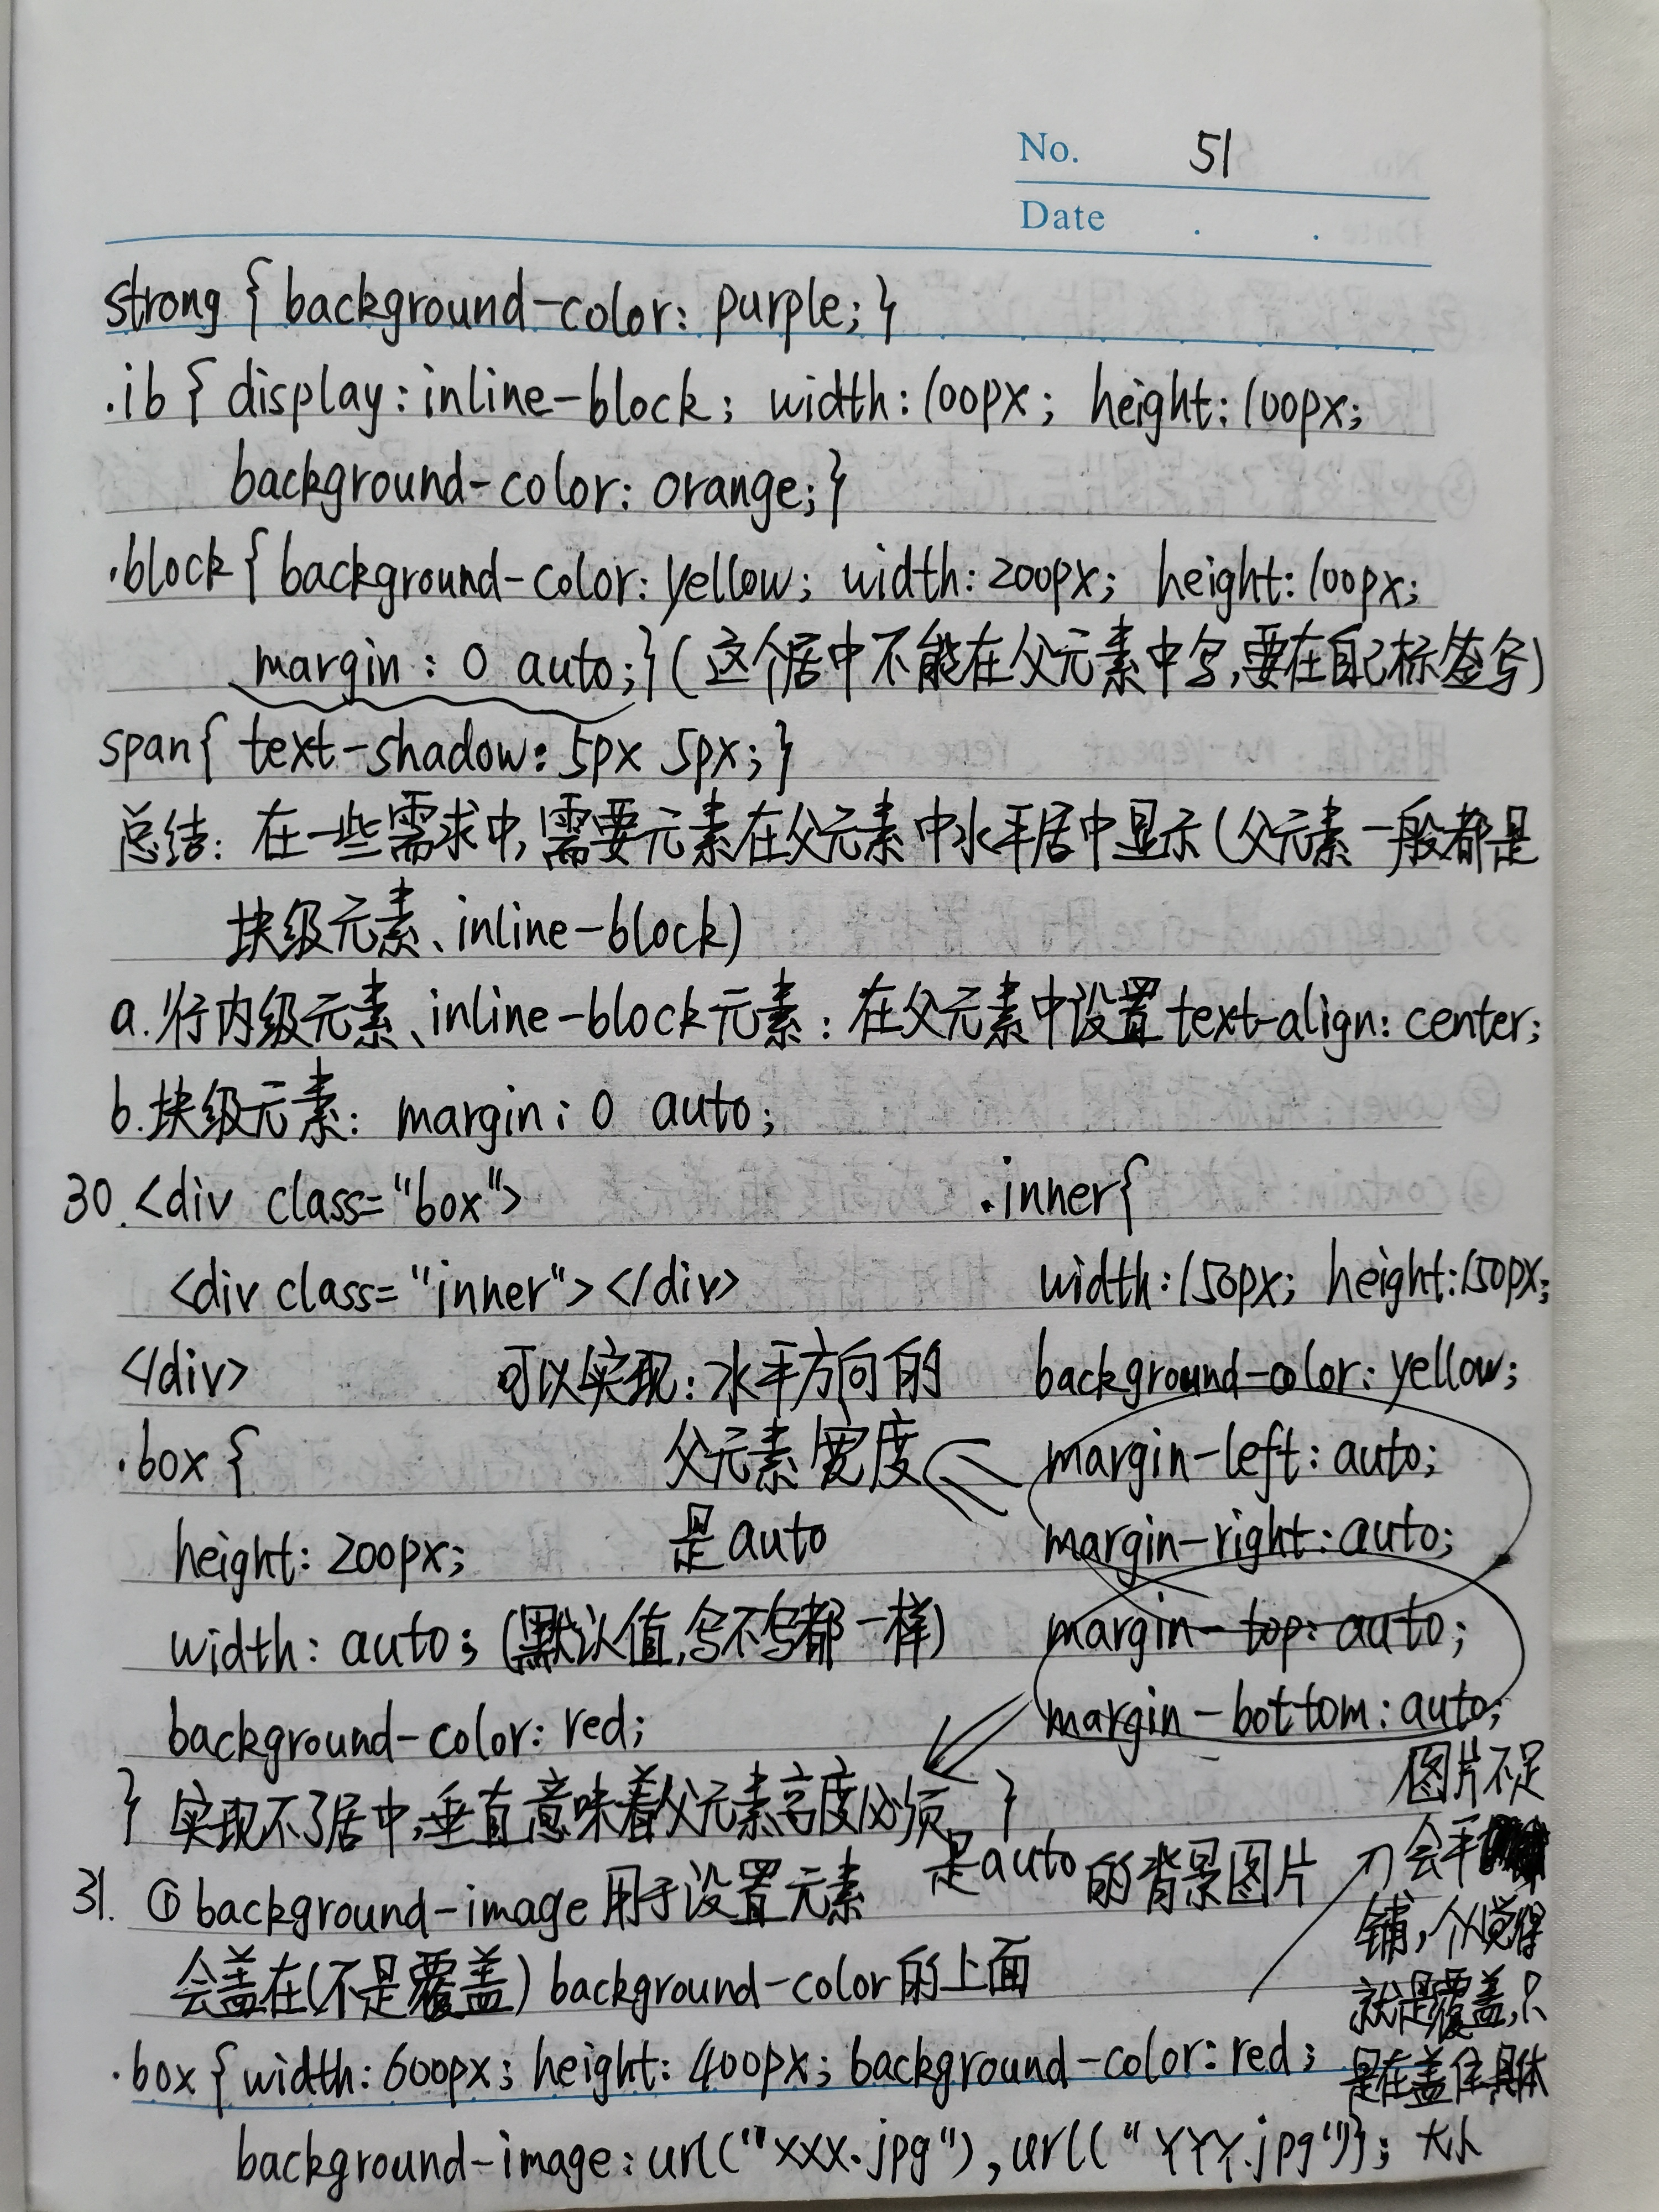 No. 51
Date . .
strong { background-color: purple; }
.ib { display: inline-block; width: 100px; height: 100px;
background-color: orange; }
.block { background-color: yellow; width: 200px; height: 100px;
margin: 0 auto; } (这个居中不能在父元素中写,要在自己标签写)
span{ text-shadow: 5px 5px; }
总结: 在一些需求中,需要元素在父元素中水平居中显示(父元素一般都是
块级元素、inline-block)
a.行内级元素、inline-block元素: 在父元素中设置text-align: center;
b.块级元素: margin: 0 auto;
30.<div class="box">
<div class="inner"></div>
</div>
.box {
height: 200px;
width: auto; (默认值,写不写都一样)
background-color: red;
}
可以实现: 水平方向的
父元素宽度
是auto
.inner{
width: 150px; height: 150px;
background-color: yellow;
margin-left: auto;
margin-right: auto;
margin-top: auto;
margin-bottom: auto;
}
实现不了居中,垂直意味着父元素高度必须
是auto
31. ①background-image用于设置元素的背景图片
会盖在(不是覆盖) background-color的上面
图片不足
会平
铺,个人觉得
就是覆盖,只
是在盖住具体
大小
.box { width: 600px; height: 400px; background-color: red;
background-image: url("xxx.jpg"), url("YYY.jpg")};